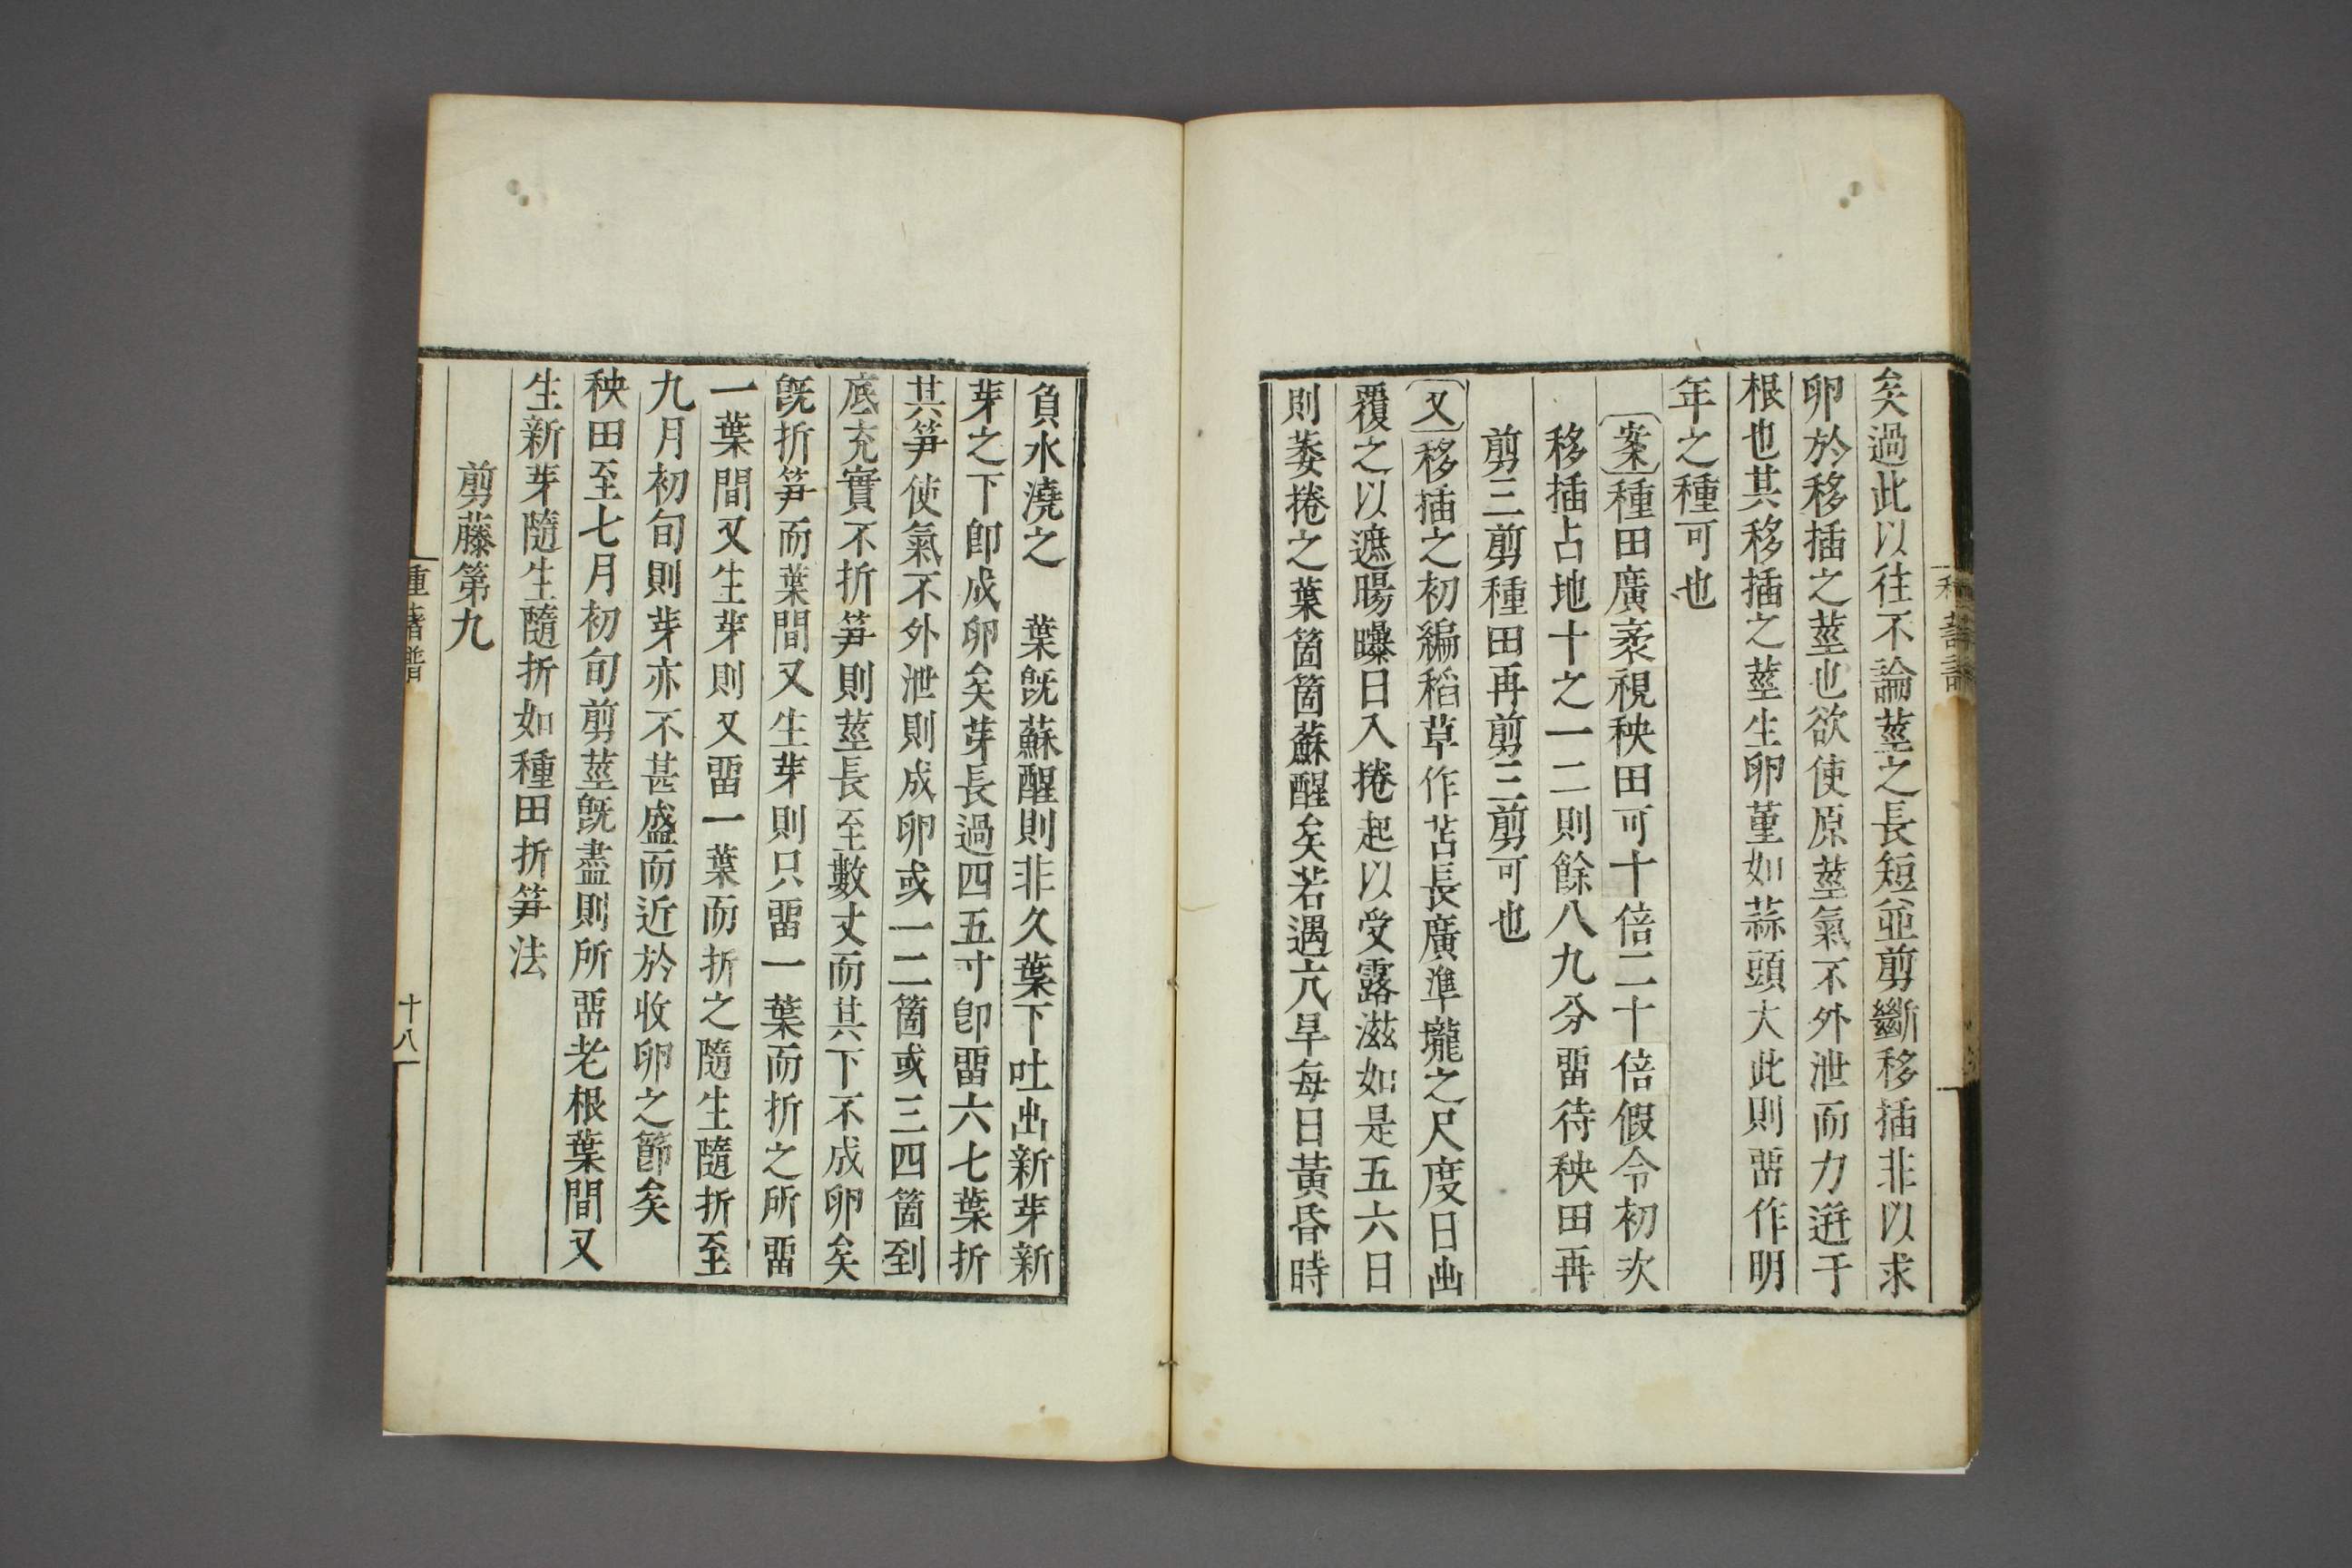 矣過此以往不論莖之長短並剪斷移插非以求
卵於移插之莖也欲使原莖氣不外泄而力逬于
根也其移插之莖生卵菫如蒜頭大此則畱作明
年之種可也
案種田廣袤視秧田可十倍二十倍假令初次
移插占地十之一二則餘八九分畱待秧田再
剪三剪種田再剪三剪可也
又移插之初編稻草作苫長廣準壠之尺度日出
覆之以遮暘曝日入捲起以受露滋如是五六日
則萎捲之葉箇箇蘇醒矣若遇亢旱每日黃昏時
負水澆之　葉旣蘇醒則非久葉下吐出新芽新
芽之下卽成卵矣芽長過四五寸卽畱六七葉折
其笋使氣不外泄則成卵或一二箇或三四箇到
底充實不折笋則莖長至數丈而其下不成卵矣
旣折笋而葉間又生芽則只畱一葉而折之所畱
一葉間又生芽則又畱一葉而折之隨生隨折至
九月初旬則芽亦不甚盛而近於收卵之節矣
秧田至七月初旬剪莖旣盡則所畱老根葉間又
生新芽隨生隨折如種田折笋法
剪藤第九
種藷譜
十八